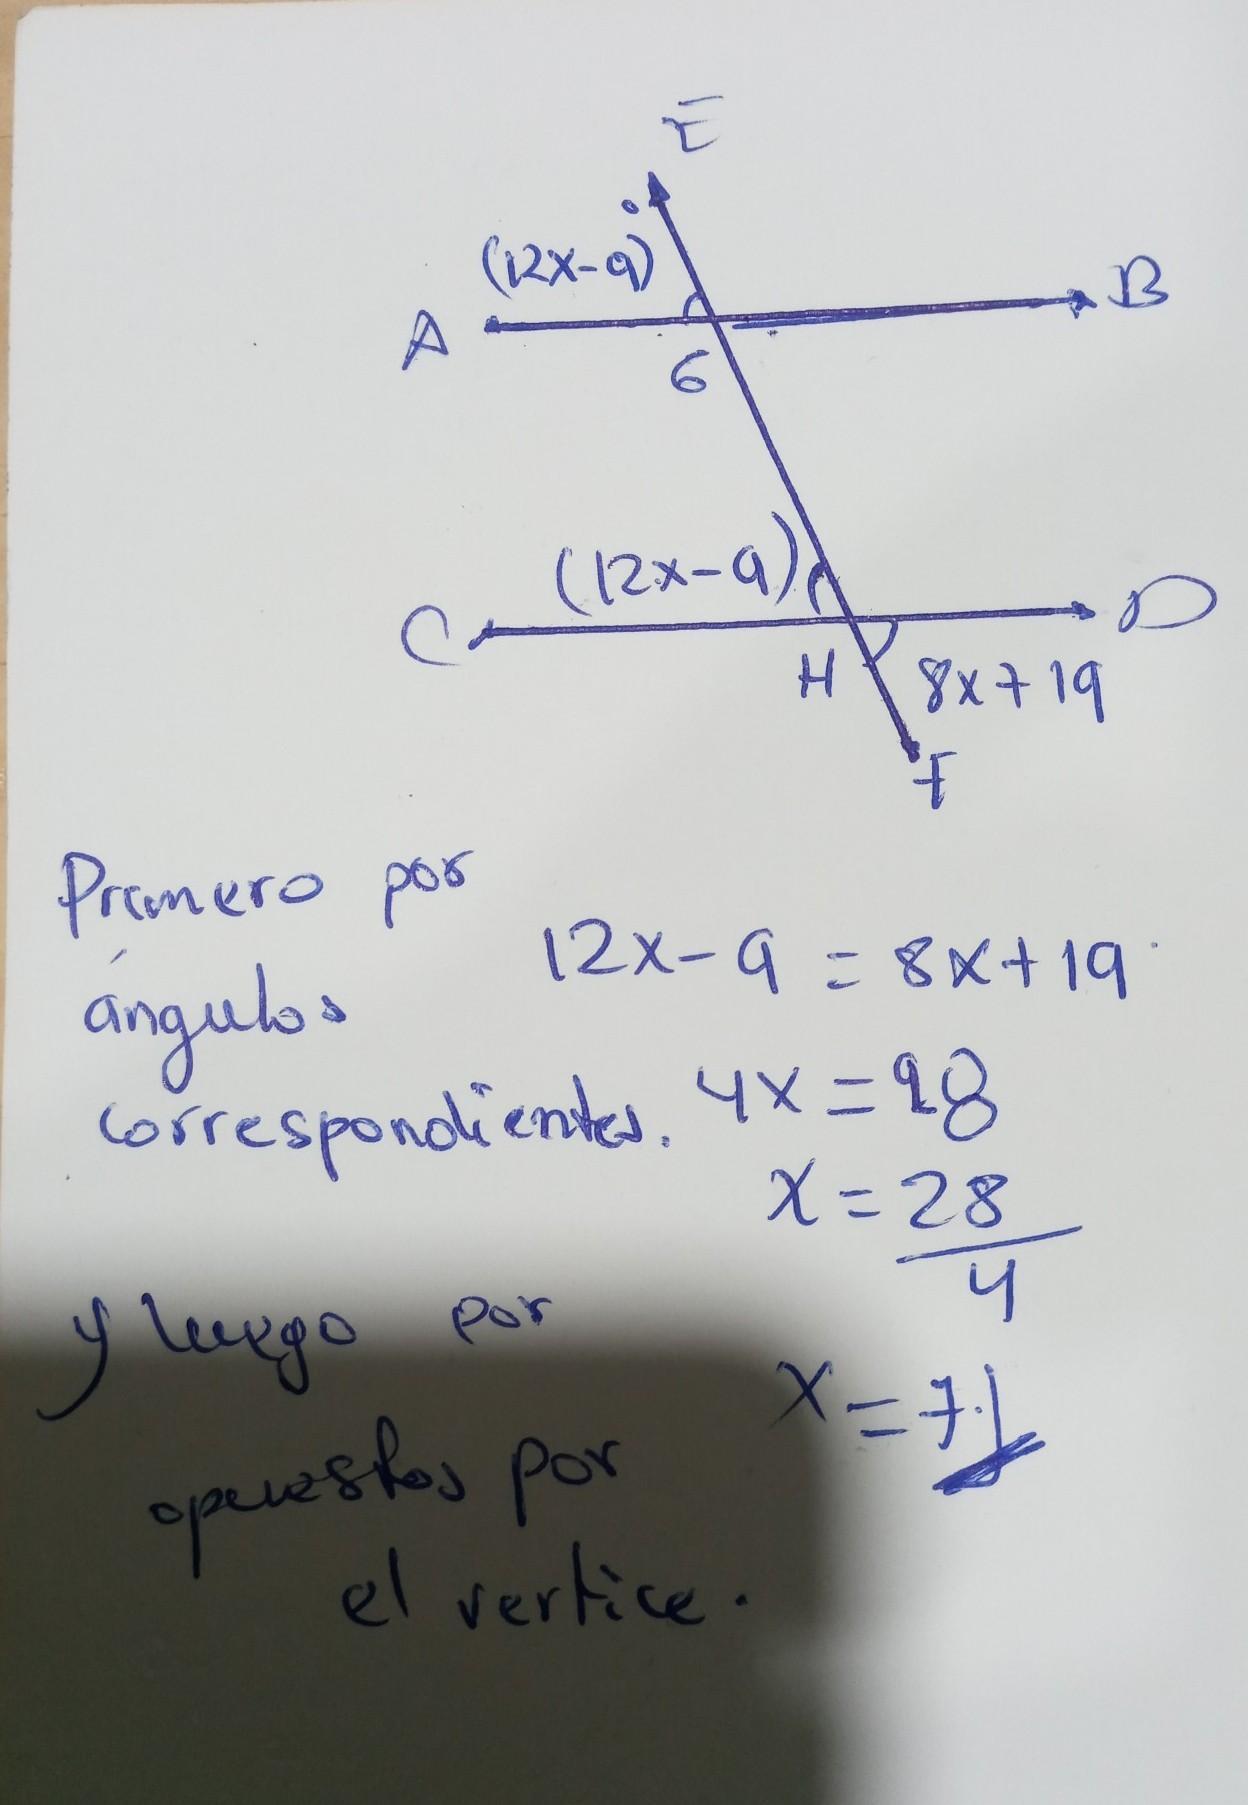 E
(12x-9)
A
B
G
(12x-9)
C
D
H
8x+19
F
Primero por
ángulos
correspondientes.
12x-9 = 8x+19
4x = 28
x = 28
4
y luego por
x = 7
opuestos por
el vertice.